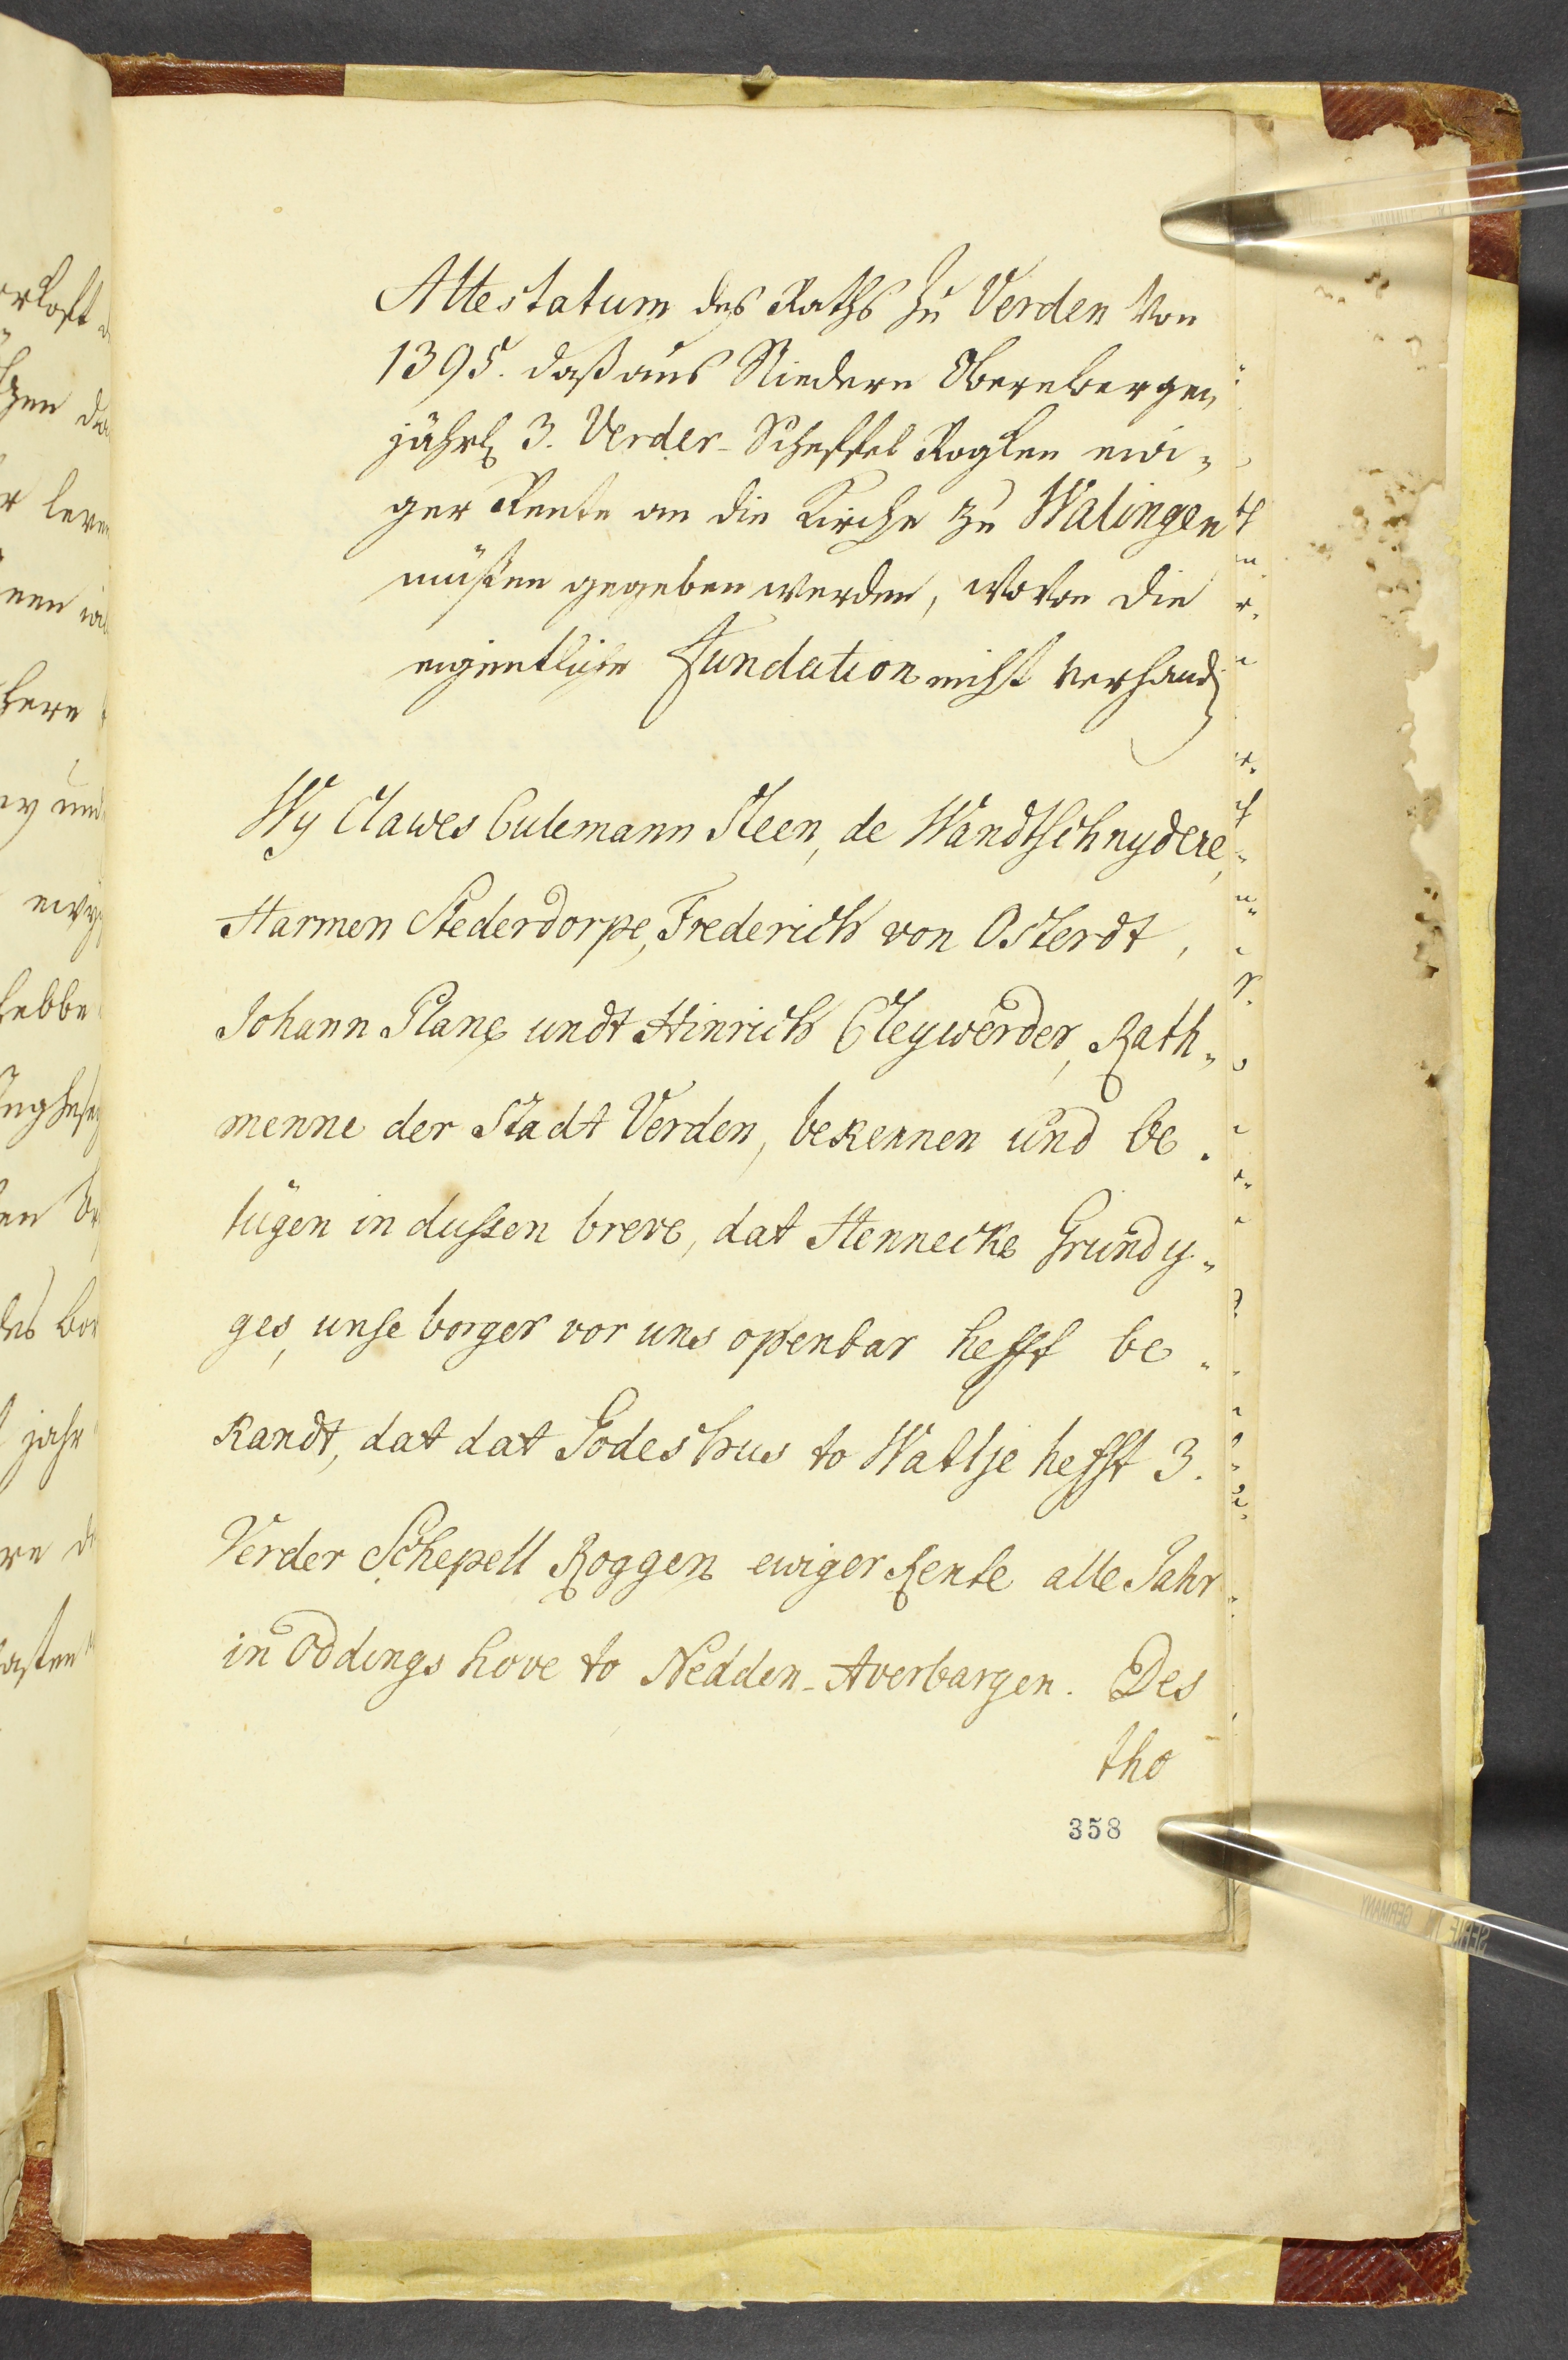 Attestatum des Raths zu Verden von
1395. daß aus Niedern Oberenbergen
jährl 3. Verder-Scheffel Rogken ewi-
ger Rente an die Kirche zu Walingen
müßen gegeben werden, wovon die
eigentliche Fundation nicht verhand
Wy Clawes Culemann Steen, de Wandtschnydere,
Harmen Stederdorpe, Frederich von Osterdt,
Johann Plang undt Hinrich Cleywerder, Rath-
menne der Stadt Verden, bekennen und be-
tügen in dussen breve, dat Hennecke Grundy-
ges, unse borger vor uns openbar hefft be-
kandt, dat dat Godeshus to Wattse hefft 3.
Verder Schepell Roggen ewiger Rente alle Jahr
in Oddings hove to Nedden-Averbargen. Des
tho
358